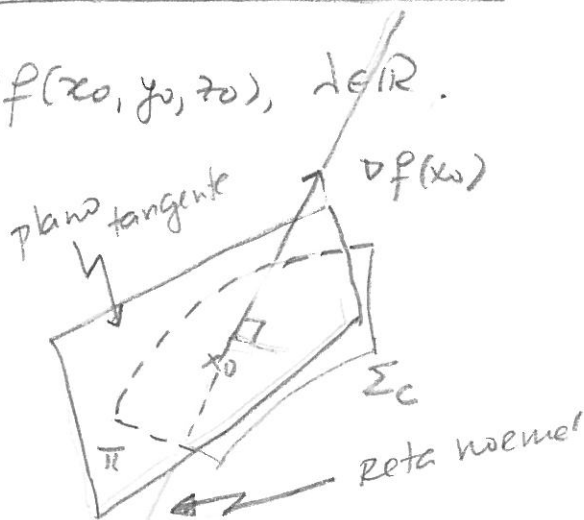 f(x0, y0, z0), λ∈ℝ.
∇f(x0)
plano tangente
x0
Σc
π
Reta normal